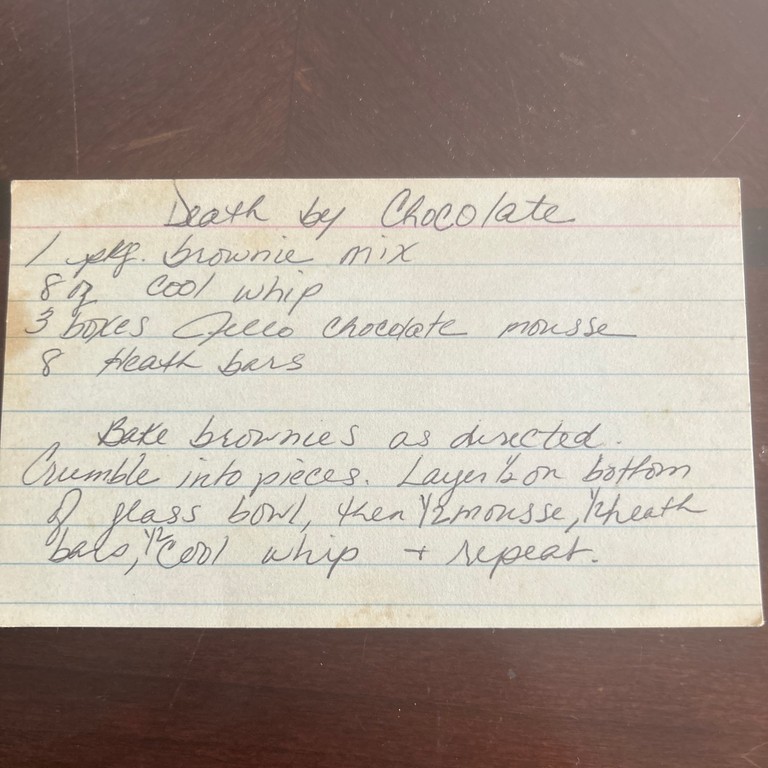 Death by Chocolate
1 pkg. brownie mix
8 oz cool whip
3 boxes Jello chocolate mousse
8 Heath bars
Bake brownies as directed.
Crumble into pieces. Layer 1/2 on bottom
of glass bowl, then 1/2 mousse, 1/2 heath
bars, 1/2 Cool whip + repeat.